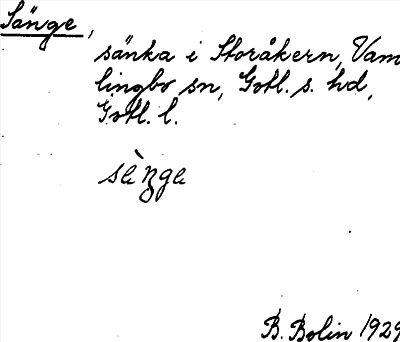 Sänge,
sänka i Storåkern, Vam
lingbo sn, Gotl. s. hd,
Gotl. l.
B. Bolin 1929